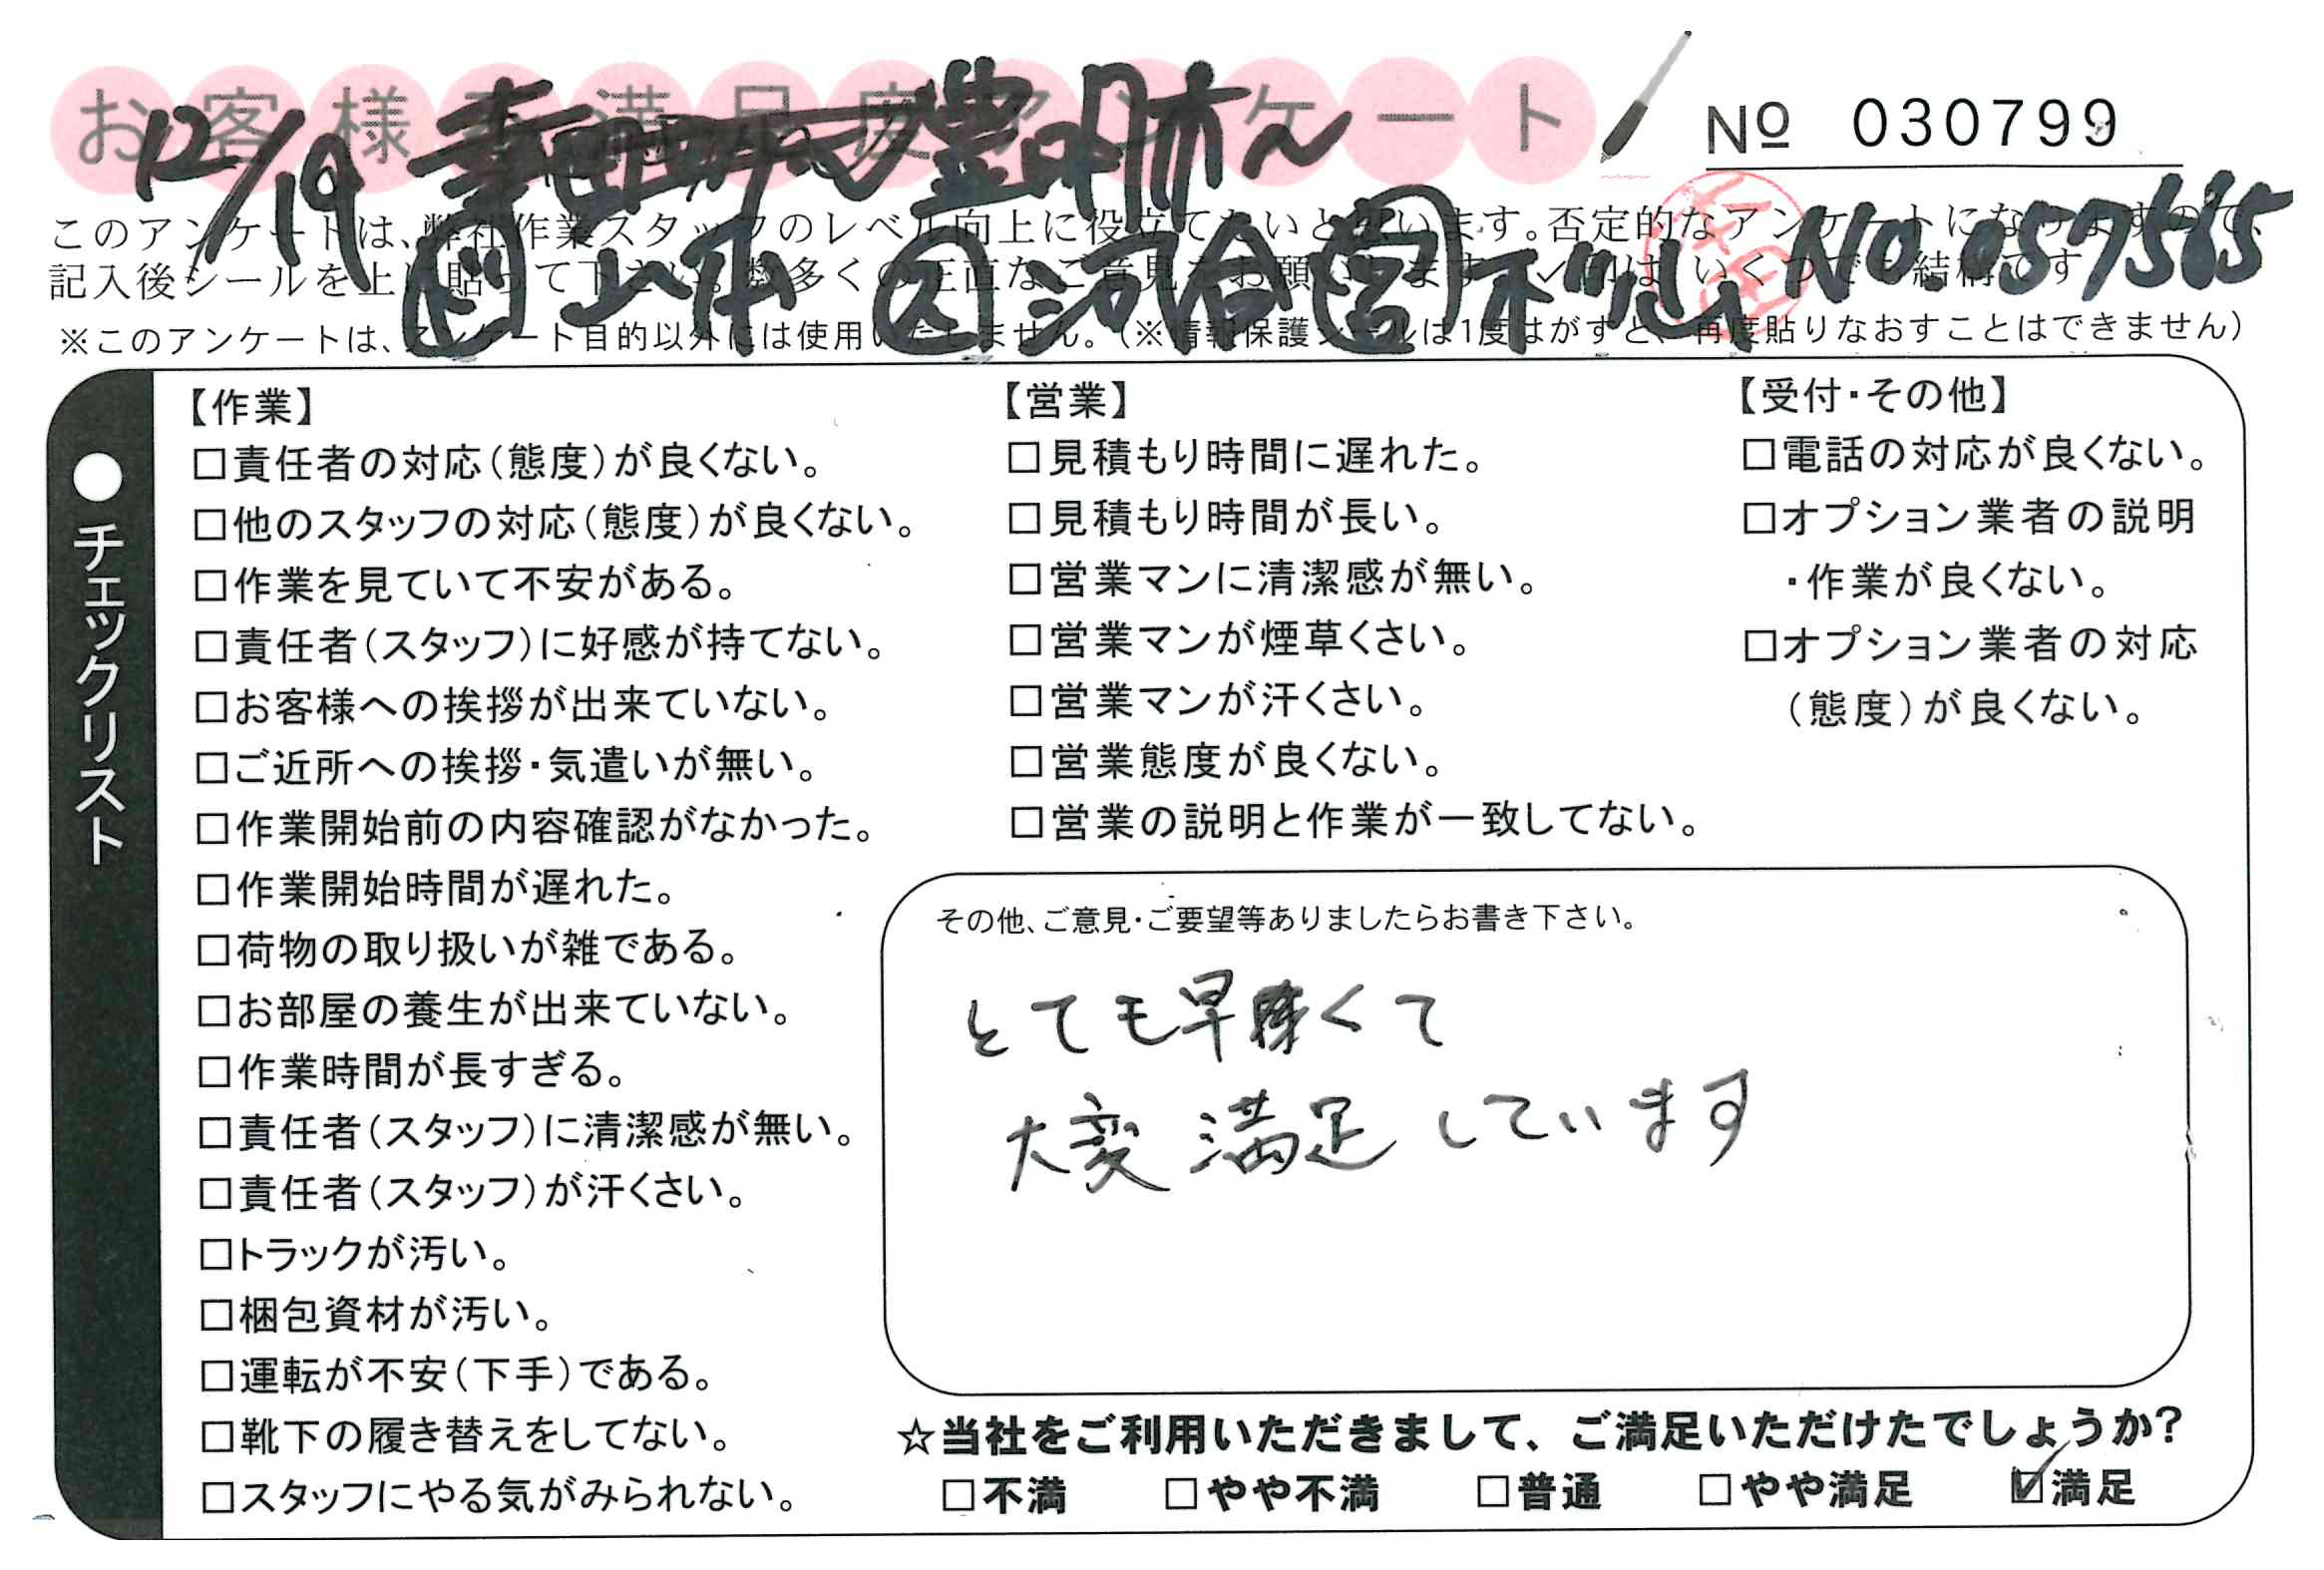 お客様 満足度アンケート
№ 030799
12/19 豊明市へ
山本 河合 営 NO.057565
このアンケートは、弊社作業スタッフのレベル向上に役立てたいと思います。否定的なアンケートになりますので、
記入後シールを上に貼って下さい。数多くの正直なご意見をお願いします。✓印は、いくつでも結構です。
※このアンケートは、アンケート目的以外には使用いたしません。（※情報保護シールは1度はがすと、再度貼りなおすことはできません）
●チェックリスト
【作業】
□責任者の対応（態度）が良くない。
□他のスタッフの対応（態度）が良くない。
□作業を見ていて不安がある。
□責任者（スタッフ）に好感が持てない。
□お客様への挨拶が出来ていない。
□ご近所への挨拶・気遣いが無い。
□作業開始前の内容確認がなかった。
□作業開始時間が遅れた。
□荷物の取り扱いが雑である。
□お部屋の養生が出来ていない。
□作業時間が長すぎる。
□責任者（スタッフ）に清潔感が無い。
□責任者（スタッフ）が汗くさい。
□トラックが汚い。
□梱包資材が汚い。
□運転が不安（下手）である。
□靴下の履き替えをしてない。
□スタッフにやる気がみられない。
【営業】
□見積もり時間に遅れた。
□見積もり時間が長い。
□営業マンに清潔感が無い。
□営業マンが煙草くさい。
□営業マンが汗くさい。
□営業態度が良くない。
□営業の説明と作業が一致してない。
【受付・その他】
□電話の対応が良くない。
□オプション業者の説明
・作業が良くない。
□オプション業者の対応
（態度）が良くない。
その他、ご意見・ご要望等ありましたらお書き下さい。
とても早くて
大変満足しています
☆当社をご利用いただきまして、ご満足いただけたでしょうか？
□不満 □やや不満 □普通 □やや満足 ☑満足